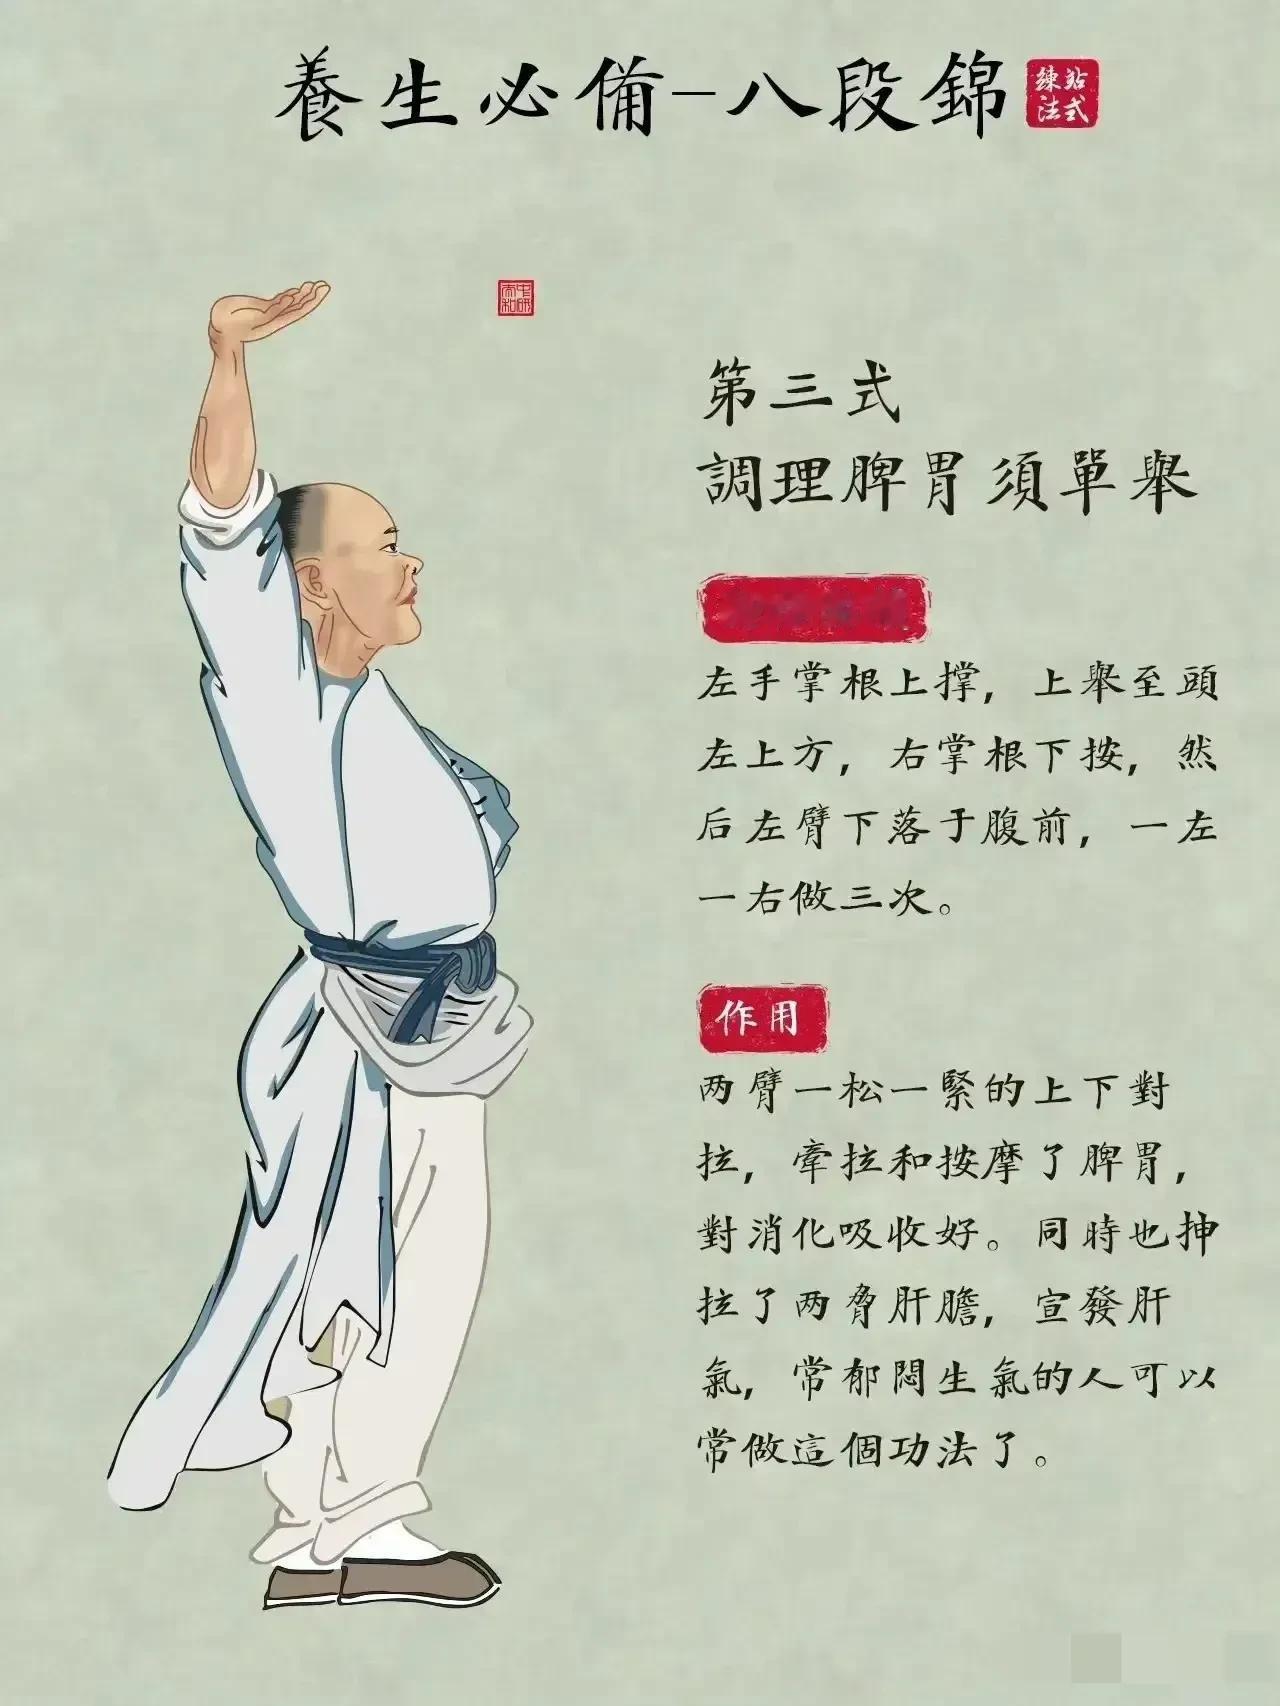 養生必備-八段錦
站式
練法
第三式
調理脾胃須單舉
左手掌根上撑，上舉至頭
左上方，右掌根下按，然
后左臂下落于腹前，一左
一右做三次。
作用
两臂一松一緊的上下對
拉，牽拉和按摩了脾胃，
對消化吸收好。同時也抻
拉了两脅肝膽，宣發肝
氣，常郁悶生氣的人可以
常做這個功法了。